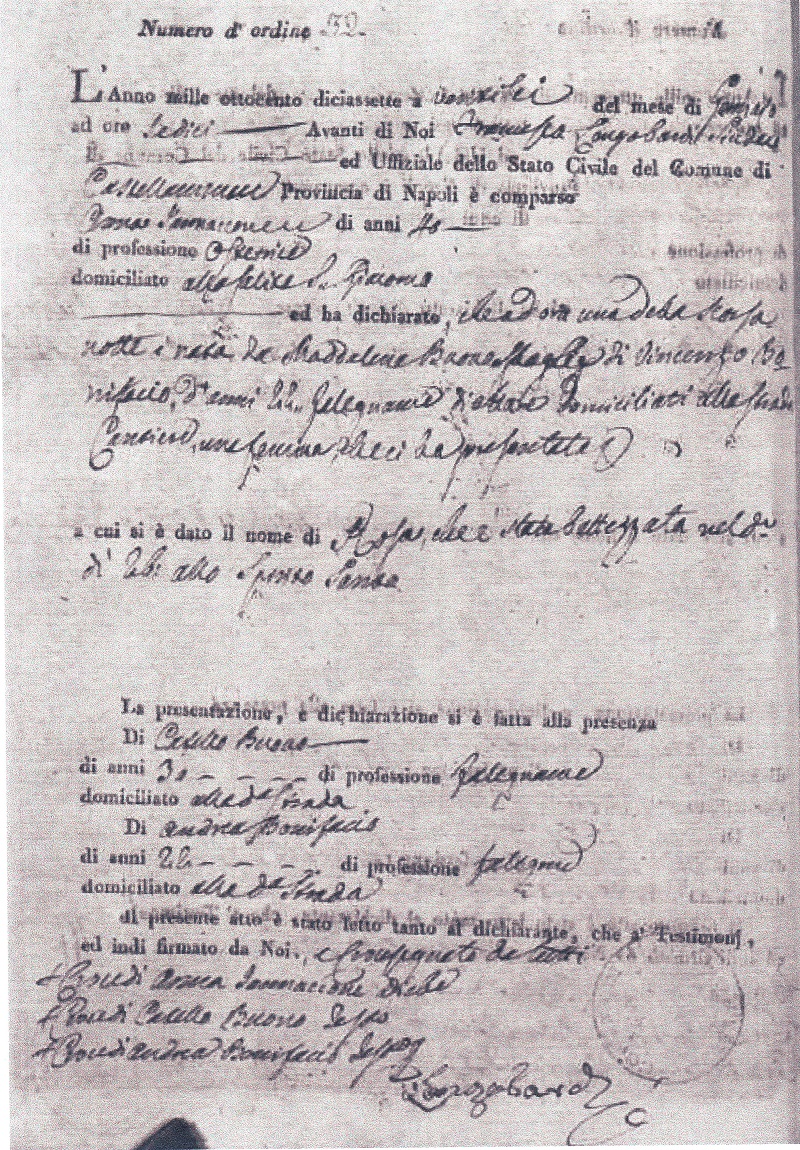 Numero d' ordine 32.
L'Anno mille ottocento diciassette a ventisei del mese di Genajo
ad ore sedici Avanti di Noi Longobardi Sindaco
ed Uffiziale dello Stato Civile del Comune di
Castellammare Provincia di Napoli è comparso
Anna di anni 40
di professione Ostetrice
domiciliato alla salita S. Giacomo
ed ha dichiarato, che ad ore una della scorsa
notte è nata da Maddalena Buono Moglie di Vincenzo Bo-
nifacio, d'anni 22. falegname d'ambi domiciliati alla strada
Cantiere, una femina che ci ha presentata
a cui si è dato il nome di Rosa, che è stata battezzata nel d.°
dì 26: allo Spirito Santo
La presentazione, e dichiarazione si è fatta alla presenza
Di Catello Buono
di anni 30 di professione falegname
domiciliato alla d.a strada
Di Andrea Bonifacio
di anni 22 di professione falegname
domiciliato alla d.a strada
di presente atto è stato letto tanto al dichiarante, che a' Testimonj,
ed indi firmato da Noi, e crocesegnato da tutti
+ Croce di Anna
+ Croce di Catello Buono Testo
+ Croce di Andrea Bonifacio Testo
Longobardi